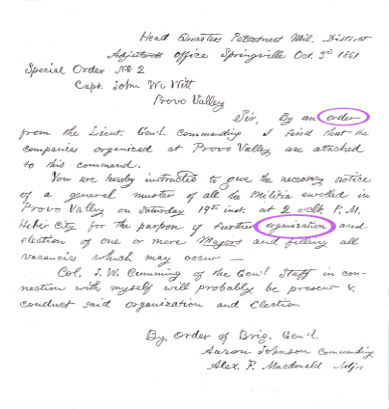 Head Quarters Peteetneet Mil. District
Adjutants Office Springville Oct. 3rd 1861
Special Order No 2
Capt. John W. Witt
Provo Valley
Sir, By an order
from the Lieut. Gen'l. Commanding I find that the
companies organized at Provo Valley are attached
to this command.
You are hereby instructed to give the necessary notice
of a general muster of all the Militia enrolled in
Provo Valley on Saturday 19th inst. at 2 oclk P. M.
Heber City for the purpose of further organization and
election of one or more Majors and filling all
vacancies which may occur —
Col. J. W. Cumming of the Gen'l Staff in con-
nection with myself will probably be present &
conduct said organization and Election
By Order of Brig. Gen'l.
Aaron Johnson Commanding
Alex. F. Macdonald Adjt